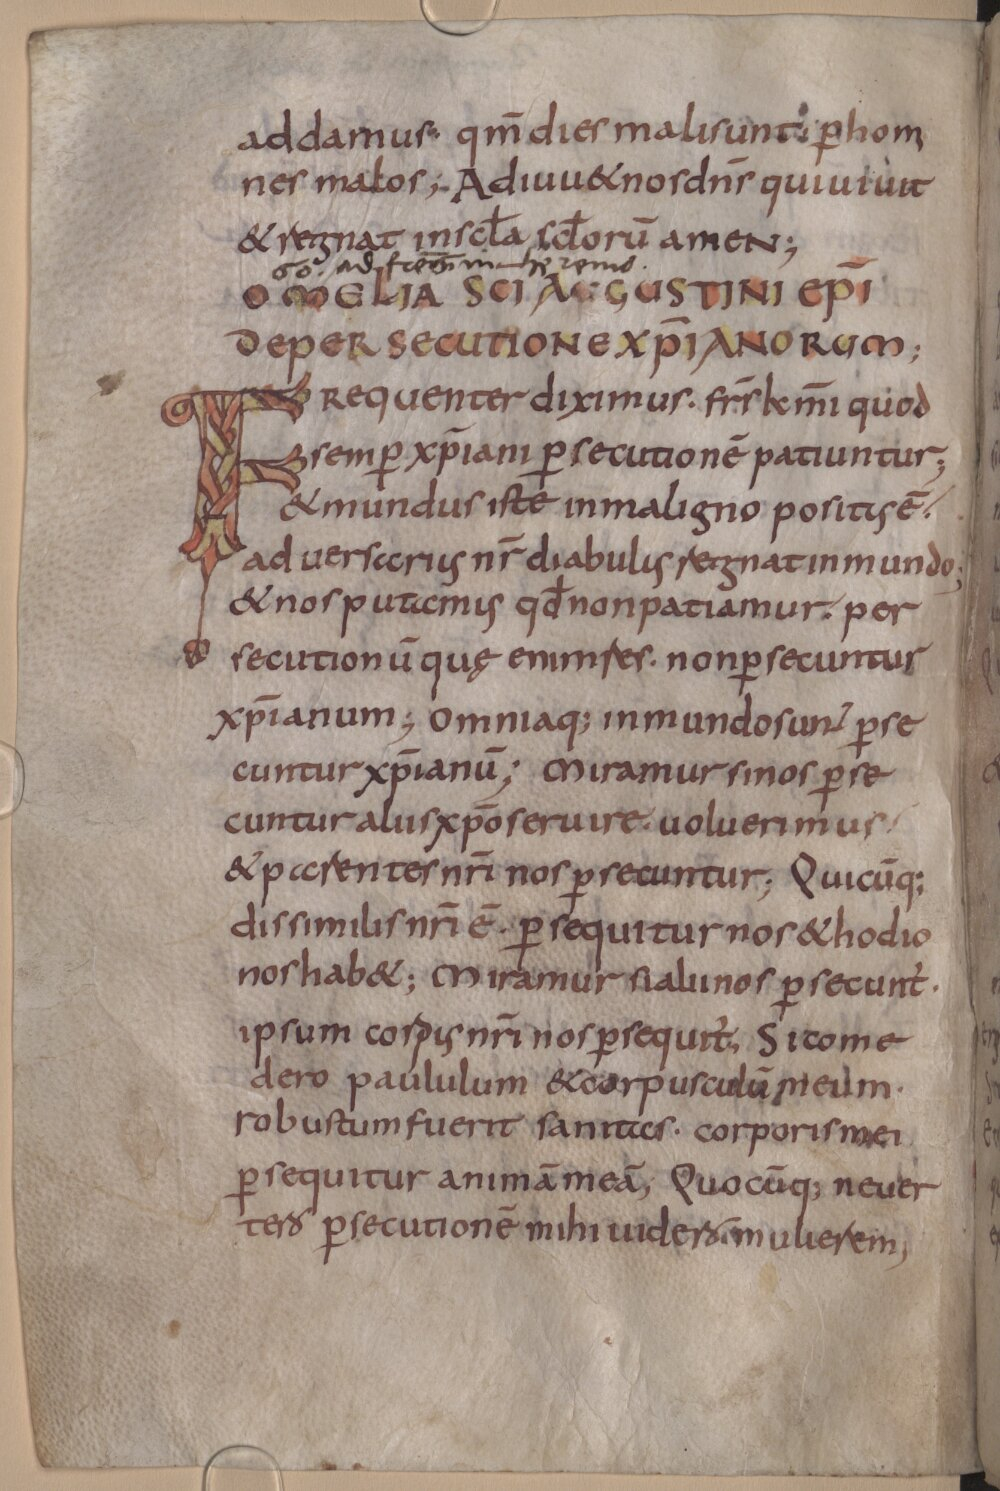 addamus. qm̄ dies mali sunt. ꝑ homi
nes malos; Adiuu& nos dn̄s qui uiuit
& regnat in scl̄a scl̄orū amen;
OMELIA SCI AGGUSTINI EPĪ
DE PERSECUTIONE XP̄IANORUM;
Frequenter diximus. frs̄ km̄i quod
semꝑ xp̄iani ꝑsecutionē patiuntur;
& mundus iste in maligno positus ē.
aduersarius nr̄ diabulus regnat in mundo;
& nos putamus qd̄ non patiamur. per
secutionū quę enim res. non ꝑsecuntur
xp̄ianum; Omniaq; in mundo sunt ꝑse
cuntur xp̄ianū; Miramur si nos ꝑse
cuntur alii si xp̄o seruire. uoluerimus
& parentes nr̄i nos ꝑsecuntur; Quicūq;
dissimilis nr̄i ē. ꝑsequitur nos & hodio
nos hab&; Miramur si alii nos ꝑsecunt̄.
ipsum corpus nr̄i nos ꝑsequit̄; Si come
dero paululum & corpusculū meum.
robustum fuerit sanitas. corporis mei
ꝑsequitur animā meā; Quocūq; me uer
tero ꝑsecutionē mihi uideo mulierem;